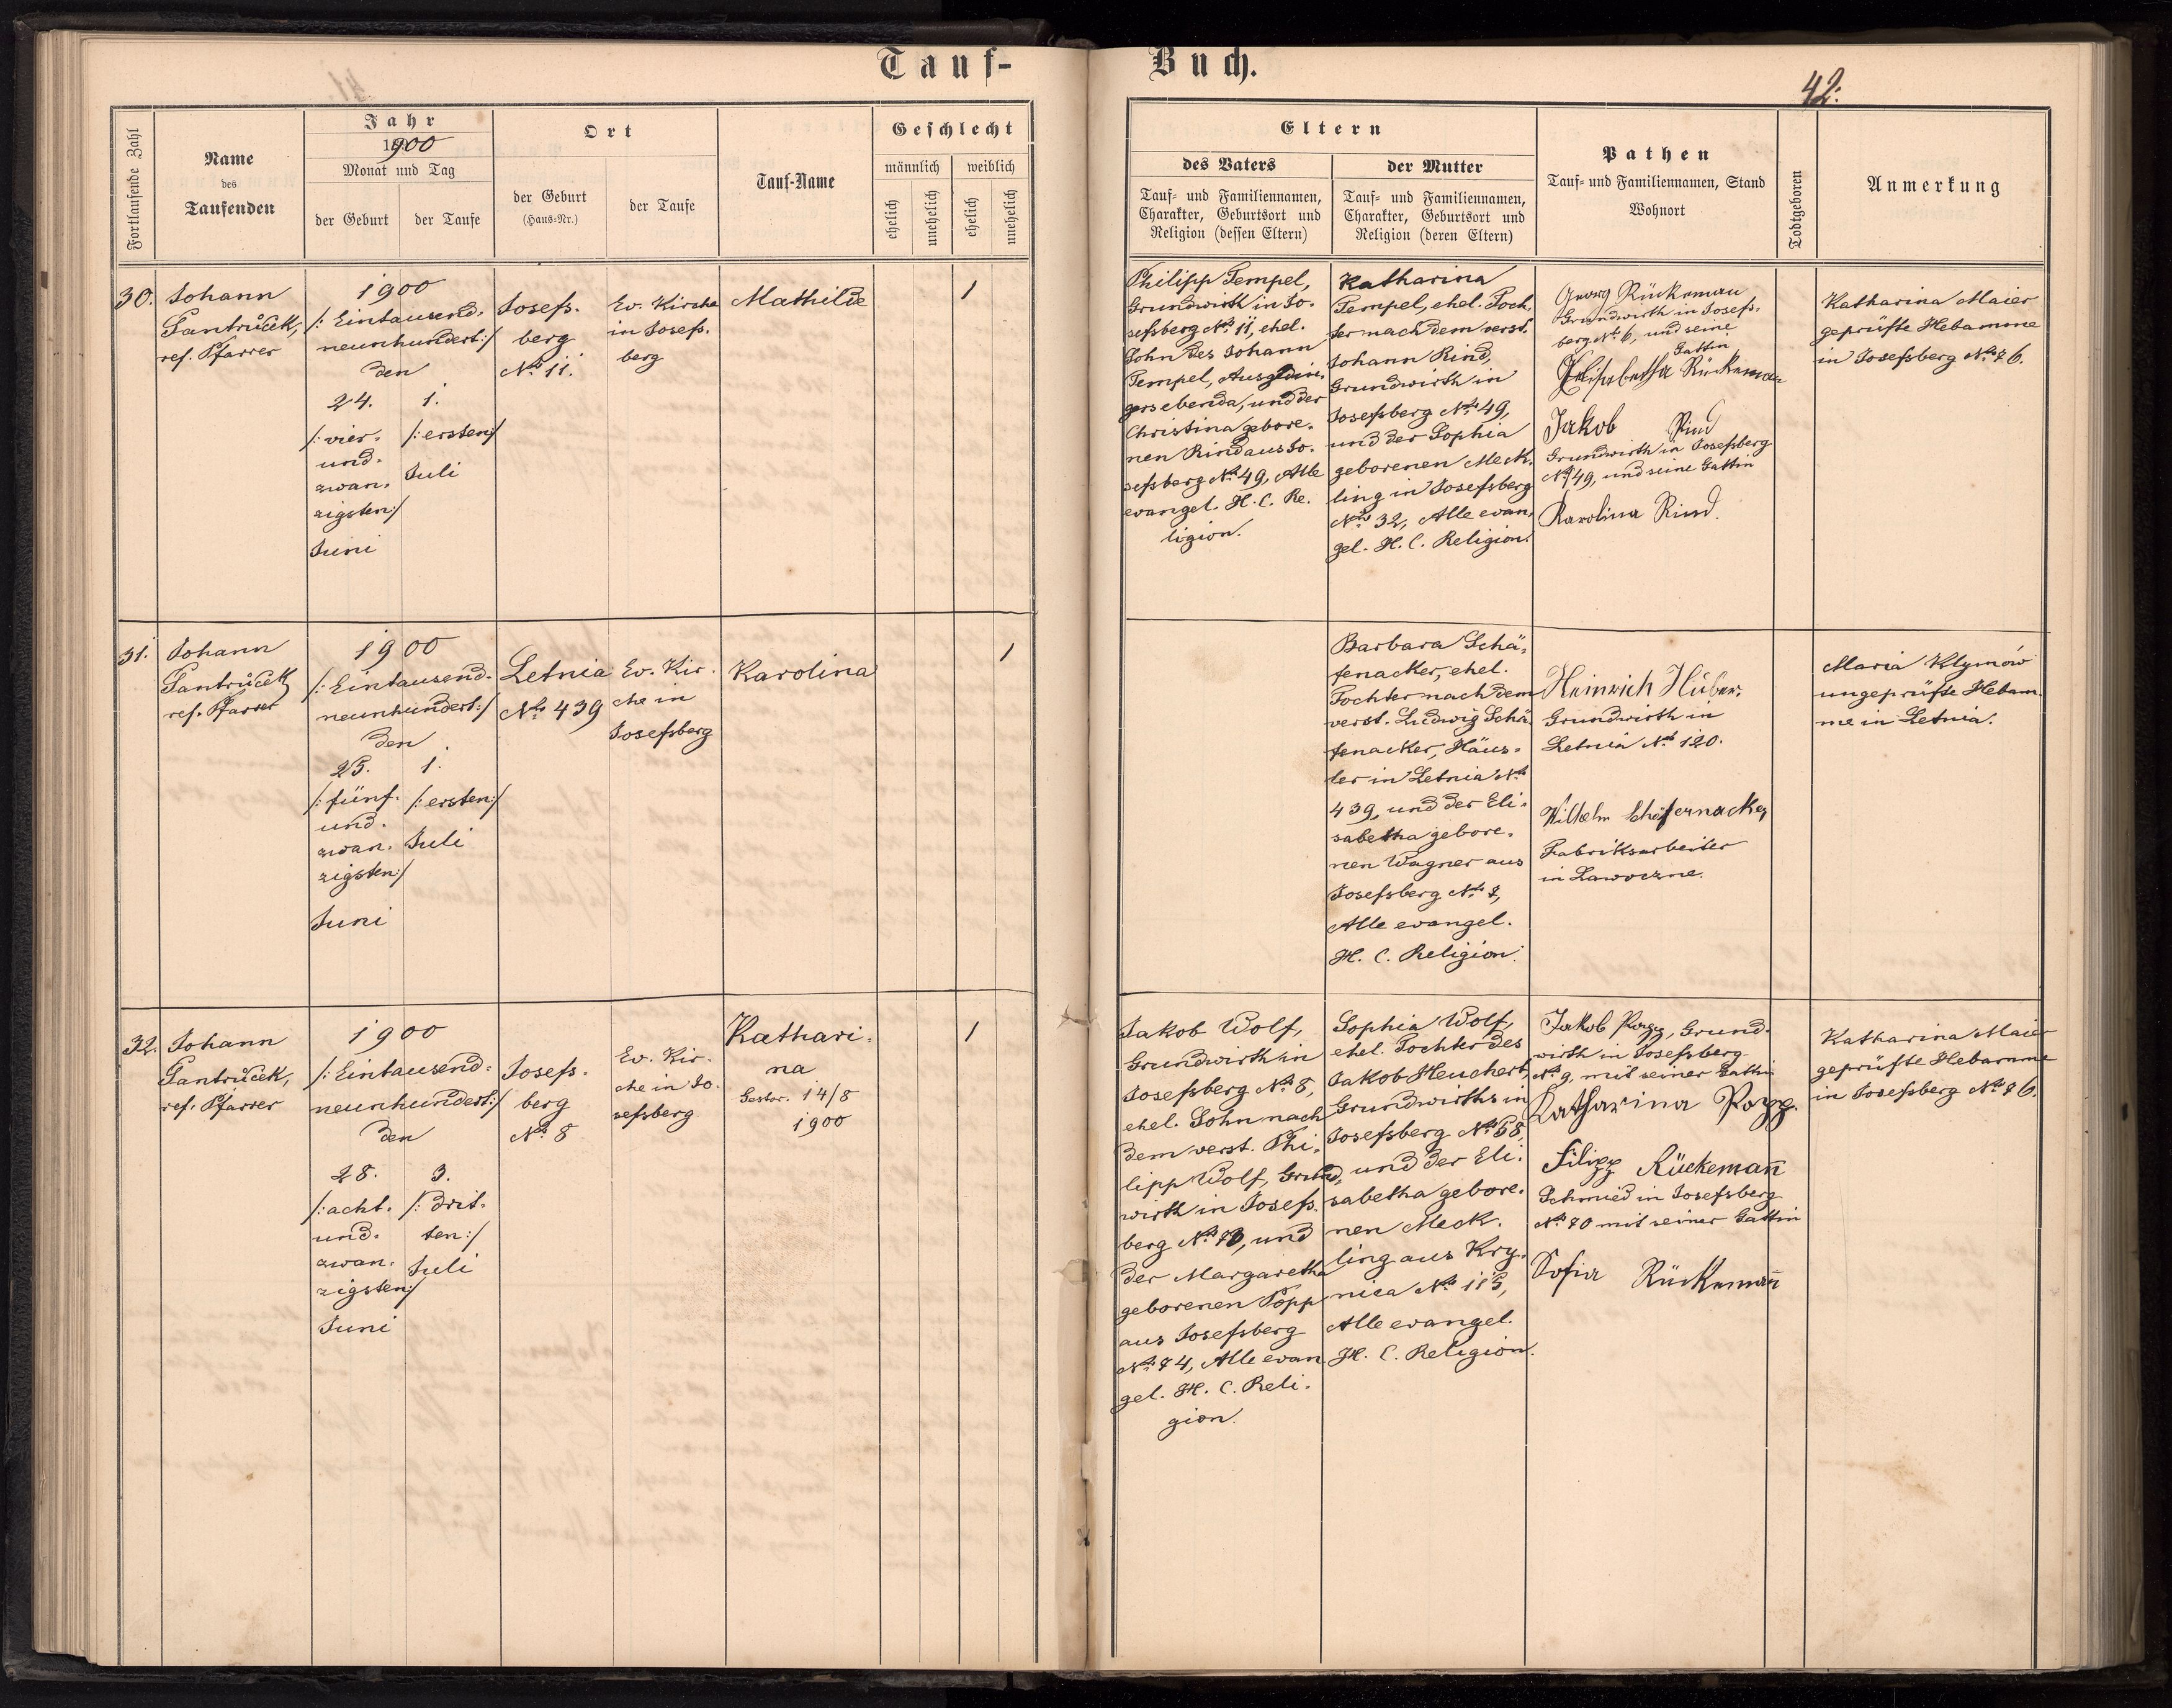 Tauf-
Buch.
42.
Fortlaufende Zahl
Name
des
Taufenden
Jahr
1900
Monat und Tag
der Geburt
der Taufe
Ort
der Geburt
(Haus-Nr.)
der Taufe
Tauf-Name
Geschlecht
männlich
weiblich
ehelich
unehelich
ehelich
unehelich
Eltern
des Vaters
Tauf- und Familiennamen,
Charakter, Geburtsort und
Religion (dessen Eltern)
der Mutter
Tauf- und Familiennamen,
Charakter, Geburtsort und
Religion (deren Eltern)
Pathen
Tauf- und Familiennamen, Stand
Wohnort
Todtgeboren
Anmerkung
30.
Johann
Jantrůček,
ref. Pfarrer
1900
/: Eintausend-
neunhundert:/
den
24.
/:vier-
und-
zwan-
zigsten:/
Juni
1.
/:ersten:/
Juli
Josefs-
berg
No 11.
Ev. Kirche
in Josefs-
berg
Mathilde
1
Philipp Tempel,
Grundwirth in Jo-
sefsberg No 11, ehel.
Sohn des Johann
Tempel, Ausgedin-
gers ebenda, und der
Christina gebore-
nen Rind aus Jo-
sefsberg No 49, Alle
evangel. H. C. Re-
ligion.
Katharina
Tempel, ehel. Toch-
ter nach dem verst.
Johann Rind,
Grundwirth in
Josefsberg No 49,
und der Sophia
geborenen Meck-
ling in Josefsberg
No 32, Alle evan-
gel. H. C. Religion.
Georg Rückemau
Grundwirth in Josefs-
berg No 6, und seine
Gattin
Elisabetha Rückeman
Jakob Rind
Grundwirth in Josefsberg
No 49, und seine Gattin
Karolina Rind.
Katharina Maier
geprüfte Hebamme
in Josefsberg No 76.
31.
Johann
Jantrůček
ref. Pfarrer
1900
/: Eintausend-
neunhundert:/
den
25.
/:fünf-
und-
zwan-
zigsten:/
Juni
1.
/:ersten:/
Juli
Letnia
No 439
Ev. Kir-
che in
Josefsberg
Karolina
1
Barbara Schä-
fenacker, ehel.
Tochter nach dem
verst. Ludwig Schä-
fenacker, Häus-
ler in Letnia No
439, und der Eli-
sabetha gebore-
nen Wagner aus
Josefsberg No 7,
Alle evangel.
H. C. Religion.
Heinrich Huber,
Grundwirth in
Letnia No 120.
Wilhelm Schefernacker
Fabriksarbeiter
in Lawoczne.
Maria Klymów
ungeprüfte Hebam-
me in Letnia.
32.
Johann
Jantrůček,
ref. Pfarrer
1900
/: Eintausend-
neunhundert:/
den
28.
/:acht-
und-
zwan-
zigsten:/
Juni
3.
/: drit-
ten:/
Juli
Josefs-
berg
No 8
Ev. Kir-
che in Jo-
sefsberg
Kathari-
na
Gestor. 14/8
1900
1
Jakob Wolf,
Grundwirth in
Josefsberg No 8,
ehel. Sohn nach
dem verst. Phi-
lipp Wolf, Grund-
wirth in Josefs-
berg No 73, und
der Margaretha
geborenen Popp
aus Josefsberg
No 74, Alle evan-
gel. H. C. Reli-
gion.
Sophia Wolf,
ehel. Tochter des
Jakob Heuchert,
Grundwirths in
Josefsberg No 58,
und der Eli-
sabetha gebore-
nen Meck-
ling aus Kry-
nica No 115,
Alle evangel.
H. C. Religion.
Jakob Popp, Grund-
wirth in Josefsberg
No 9, mit seiner Gattin
Katharina Popp.
Filipp Rückemañ
Schmied in Josefsberg
No 70 mit seiner Gattin
Sofia Rückemañ
Katharina Maier
geprüfte Hebamme
in Josefsberg No 76.